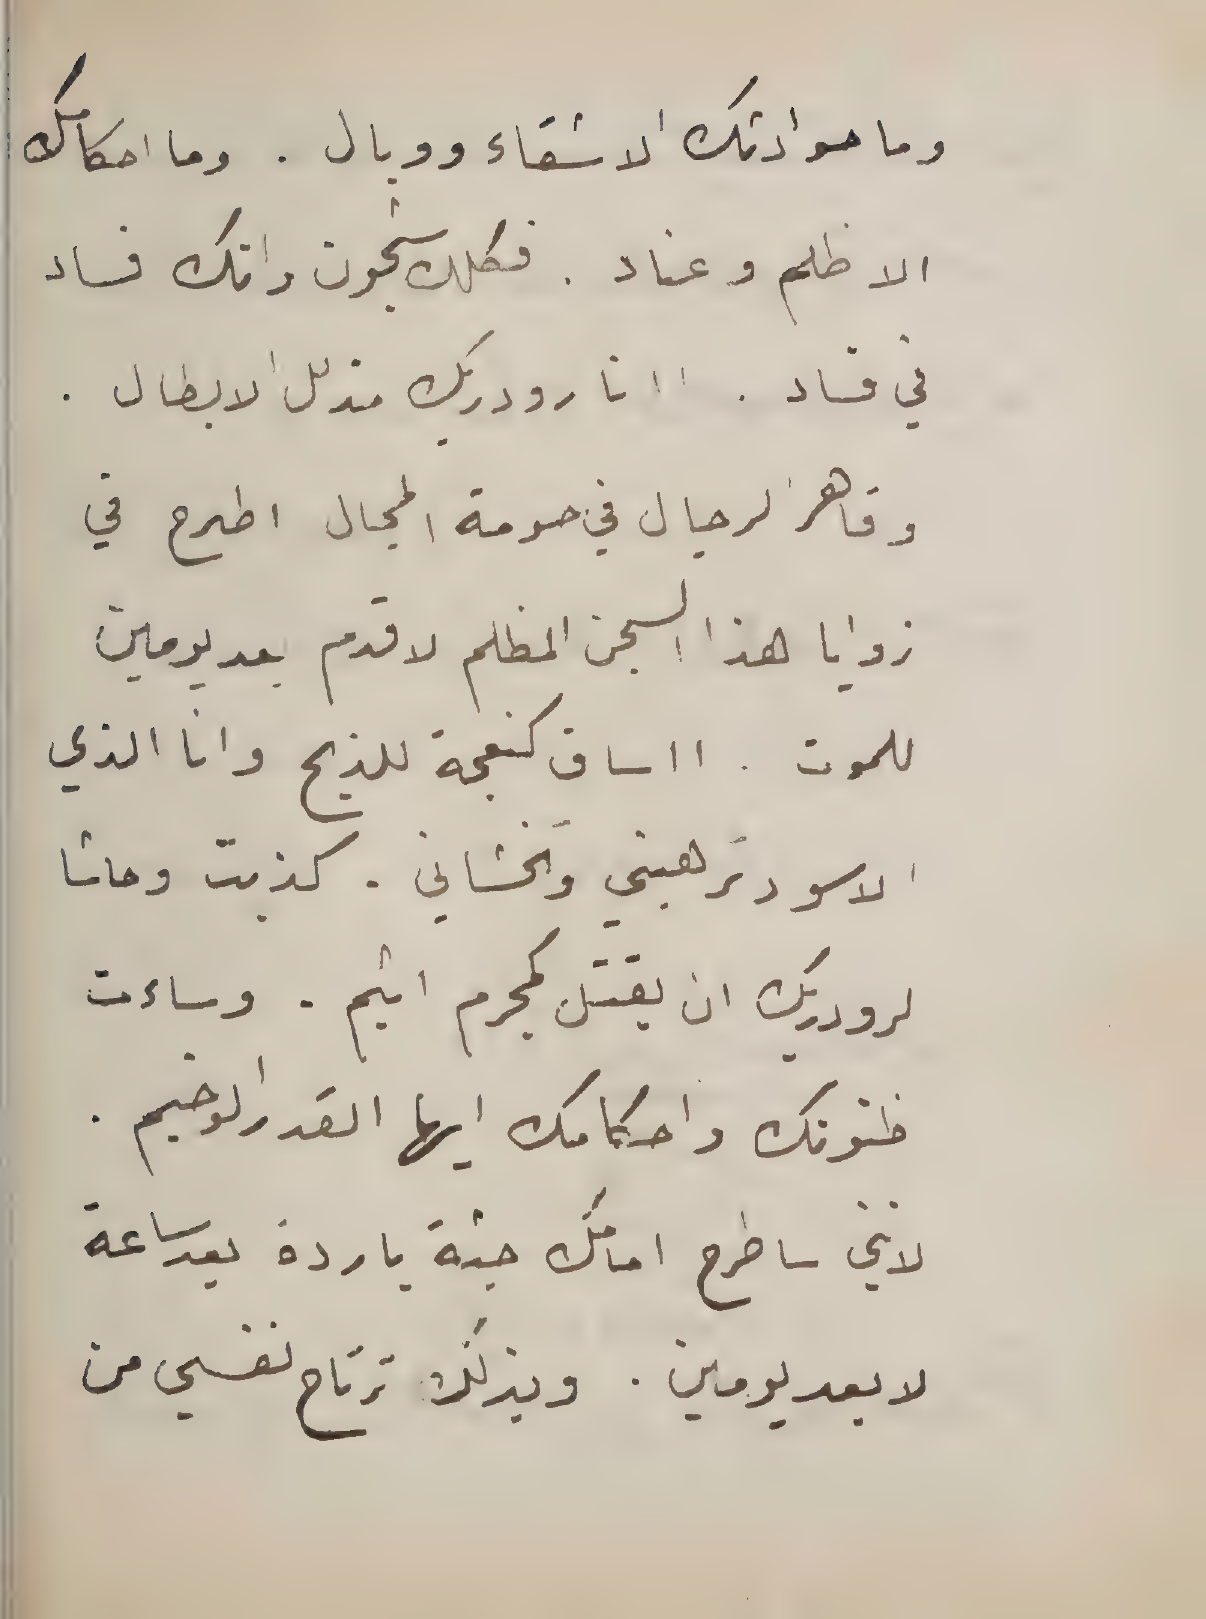 وما حوادثك الا شقاء ووبال . وما احكامك
الا ظلم وعناد . فكلك شجون وانك فساد
في فساد . اانا رودريك مذلل الابطال .
وقاهر الرجال في حومة المجال اطرح في
زوايا هذا السجن المظلم لاقدم بعد يومين
للموت . ااساق كنعجة للذبح وانا الذي
الاسود ترهبني وتخشاني . كذبت وحاشا
لرودريك ان يقتل كمجرم اثيم . وساءت
ظنونك واحكامك ايها القدر الوخيم .
لانني ساطرح امامك جثة باردة بعد ساعة
لا بعد يومين . وبذلك ترتاح نفسي من